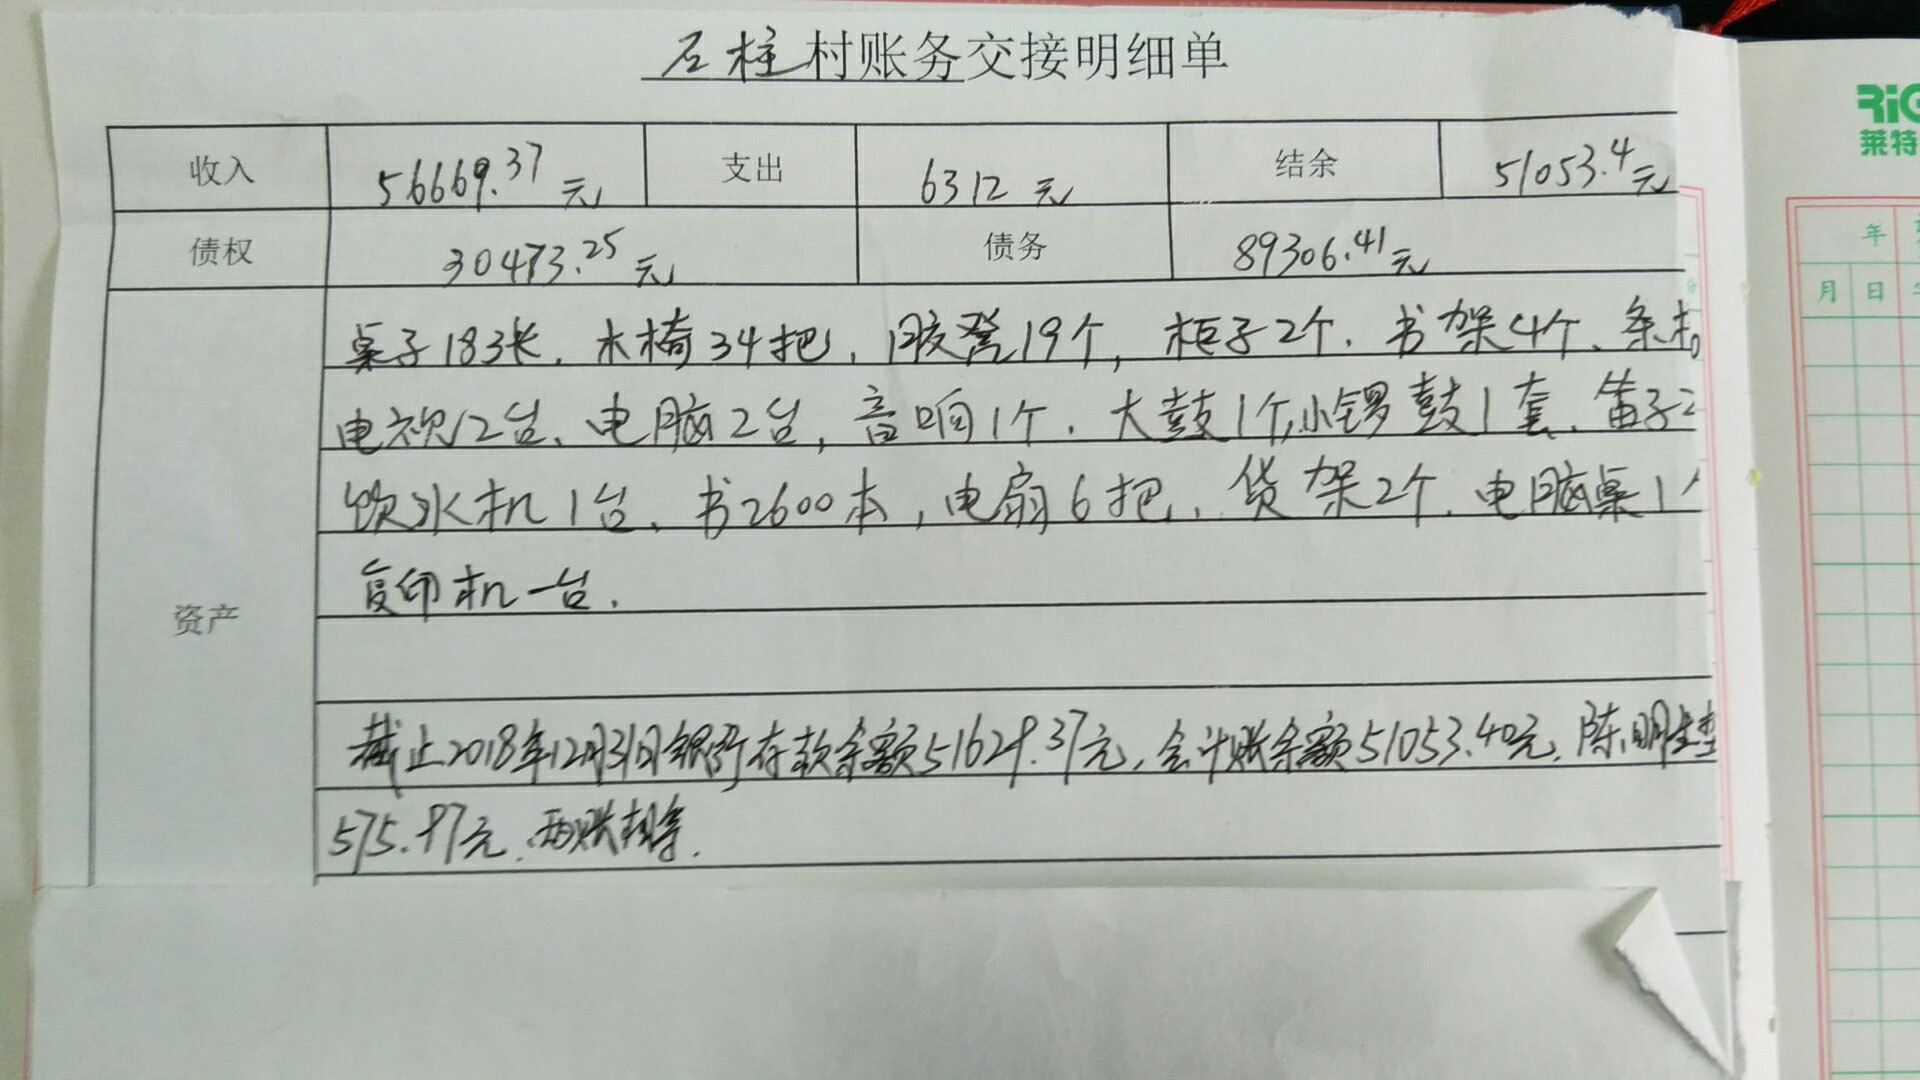 石柱村账务交接明细单
收入 56669.37元 支出 6312元 结余 51053.4元
债权 30473.25元 债务 89306.41元
资产
桌子183张、木椅34把、胶凳19个，柜子2个、书架4个、条
电视12台、电脑2台，音响1个、大鼓1个，小锣鼓1套、笛子
饮水机1台、书2600本，电扇6把、货架2个、电脑桌1
复印机一台.
截止2018年12月31日银行存款余额51629.37元，会计账余额51053.40元，陈明生垫
575.97元、两账相等.
RiG
莱特
年
月 日